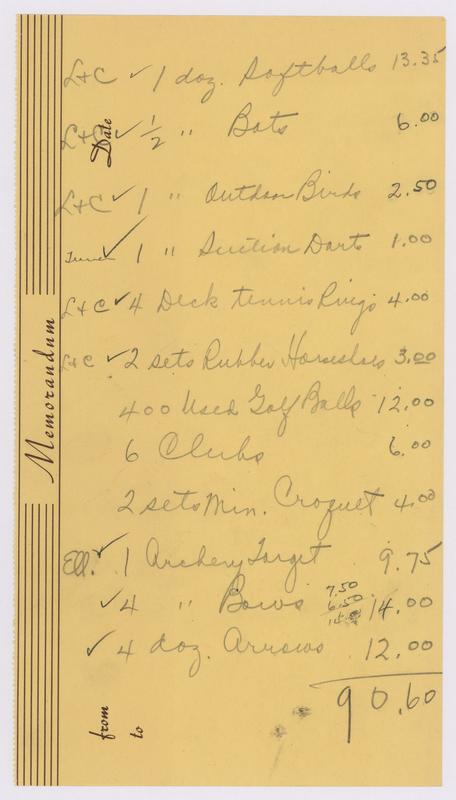 L+C ✓ 1 doz. Softballs 13.35
L+C ✓ 1/2 " Bats 6.00
Date
L+C ✓ 1 " Outdoor Birds 2.50
✓ 1 " Suction Darts 1.00
L+C ✓ 4 Deck tennis Rings 4.00
L+C ✓ 2 sets Rubber Horseshoes 3.00
Memorandum
400 Used Golf Balls 12.00
6 Clubs 6.00
2 sets Min. Croquet 4.00
Ell. ✓ 1 Archery Target 9.75
7.50
6.50
✓ 4 " Bows 14.00
✓ 4 doz. Arrows 12.00
90.60
from
to